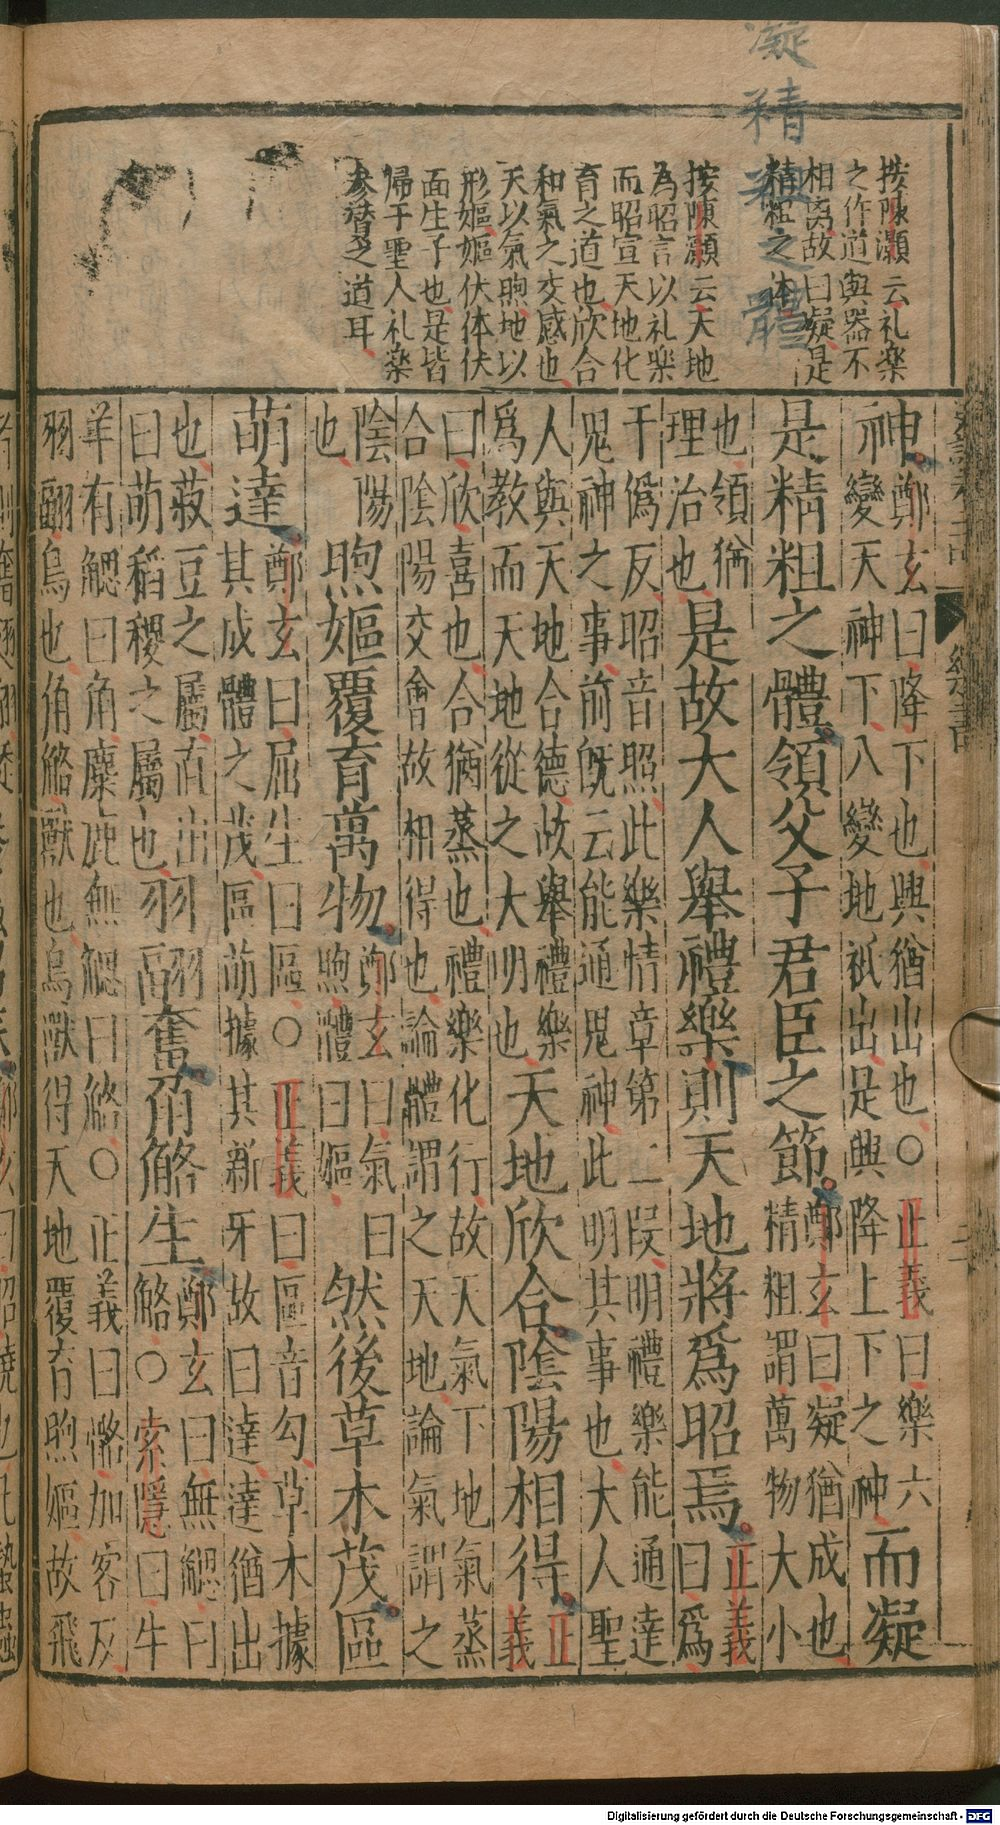 凝精粗之體
按陳灝云礼楽
之作道與器不
相离故曰凝是
精粗之体
按陳灝云天地
為昭言以礼楽
而昭宣天地化
育之道也欣合
和氣之交感也
天以氣煦地以
形嫗嫗伏体伏
面生子也是皆
帰于聖人礼楽
参賛之道耳
神鄭玄曰降下也興猶出也○正義曰樂六變天神下八變地祇出是興降上下之神而凝
是精粗之體領父子君臣之節鄭玄曰凝猶成也精粗謂萬物大小
也領猶理治也是故大人舉禮樂則天地將爲昭焉正義曰爲
干僞反昭音照此樂情章第二段明禮樂能通達鬼神之事前旣云能通鬼神此明其事也大人聖
人與天地合德故舉禮樂爲教而天地從之大明也天地欣合陰陽相得正義
曰欣喜也合猶蒸也禮樂化行故天氣下地氣蒸合陰陽交會故相得也論體謂之天地論氣謂之
陰陽也煦嫗覆育萬物鄭玄曰氣曰煦體曰嫗然後草木茂區
萌達鄭玄曰屈生曰區○正義曰區音勾草木據其成體之茂區萌據其新牙故曰達達猶出
也菽豆之屬直出曰萌稻稷之屬也羽翮奮角觡生鄭玄曰無䚡曰觡○索隱曰牛
羊有䚡曰角麋鹿無䚡曰觡○正義曰觡加客反羽翮鳥也角觡獸也鳥獸得天地覆育煦嫗故飛
Digitalisierung gefördert durch die Deutsche Forschungsgemeinschaft - DFG